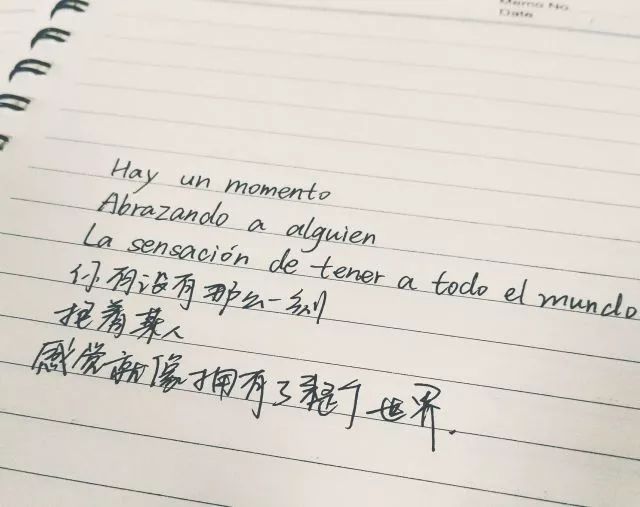 Memo No.
Date
Hay un momento
Abrazando a alguien
La sensación de tener a todo el mundo
你有没有那么一刻
抱着某人
感觉就像拥有了整个世界.